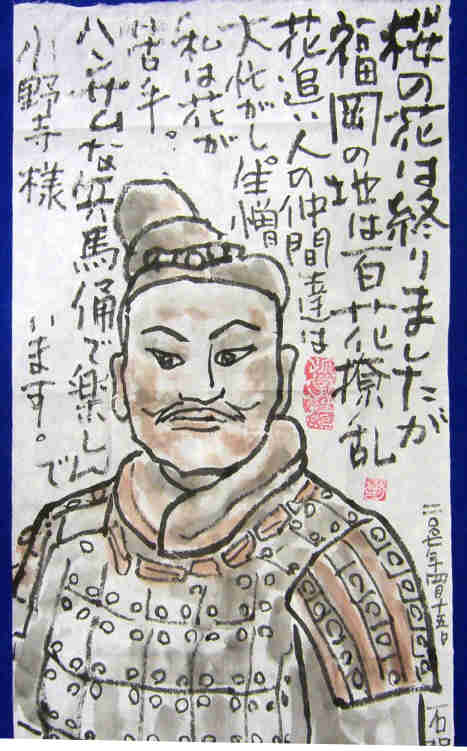 桜の花は終りましたが
福岡の地は百花撩乱
花追い人の仲間達は
大忙がし。生憎
私は花が
苦手。
ハンサムな兵馬俑で楽しんで
います。
小野寺様
二〇〇七年四月十五日